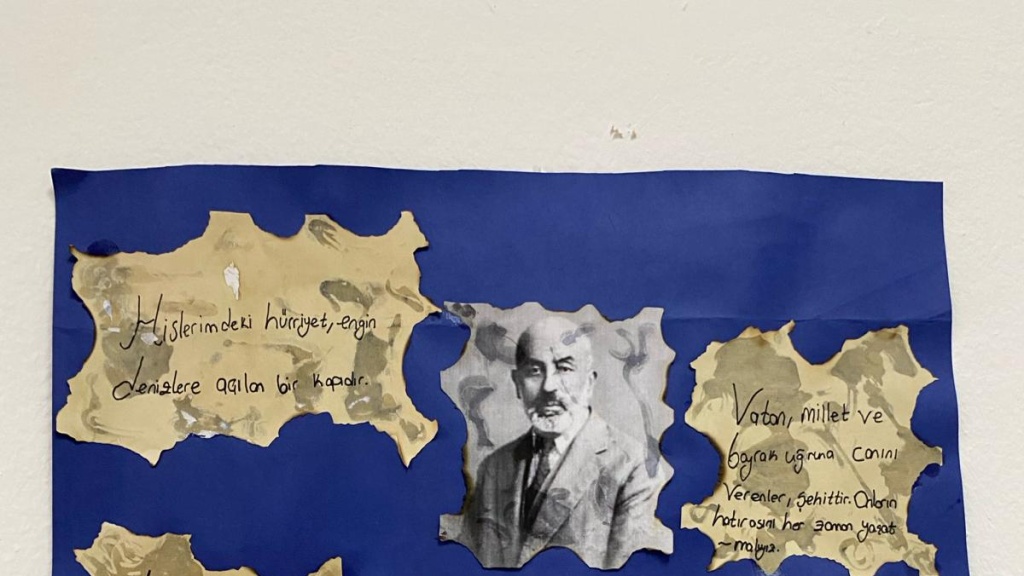 Hislerimdeki hürriyet, engin
denizlere açılan bir kapıdır.
Vatan, millet ve
bayrak uğruna canını
verenler, şehittir. Onların
hatırasını her zaman yaşat
-malıyız.